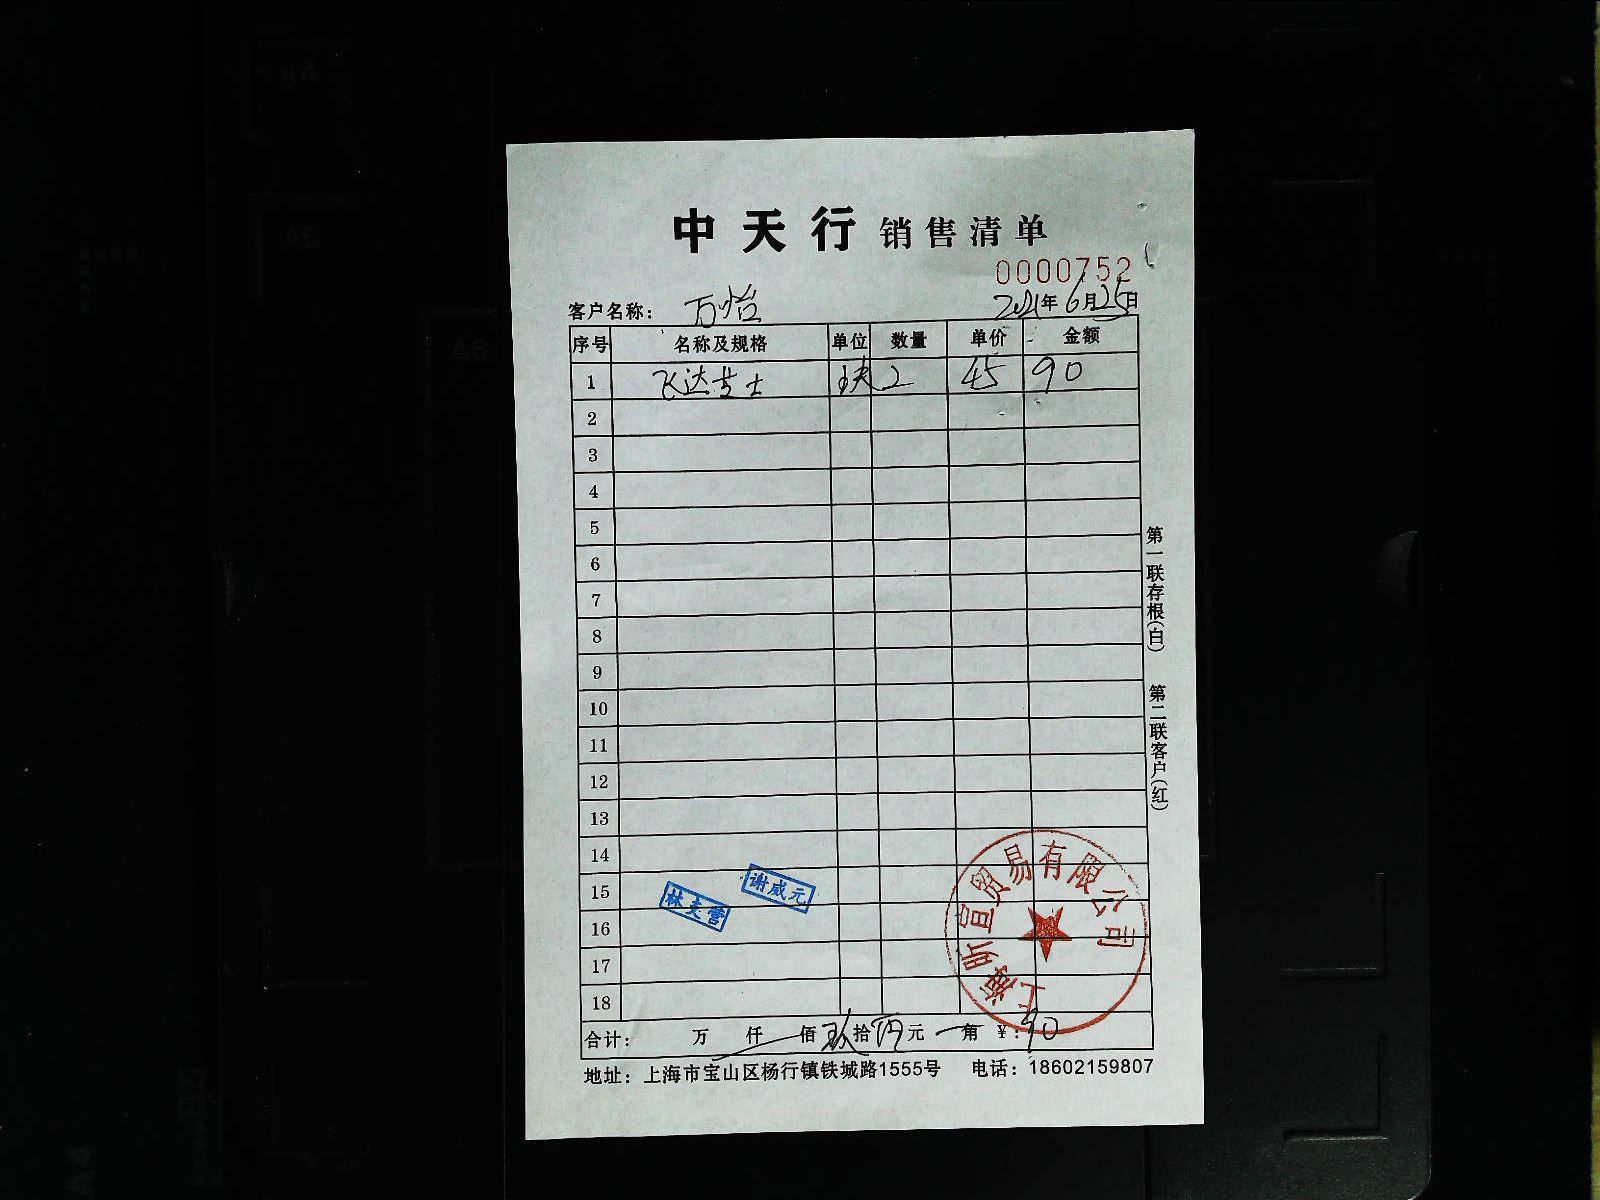 中天行 销售清单
0000752
客户名称： 万怡 2021年6月25日
序号 名称及规格 单位 数量 单价 金额
1 飞达芝士 块 2 45 90
2
3
4
5
6
7
8
9
10
11
12
13
14
15
16
17
18
谢威元
林支营
上海昕宜贸易有限公司
合计： 万 仟 佰 玖 拾 元 角 ¥：90
地址：上海市宝山区杨行镇铁城路1555号 电话：18602159807
第一联存根（白） 第二联客户（红）
A5
A6
B5
A4